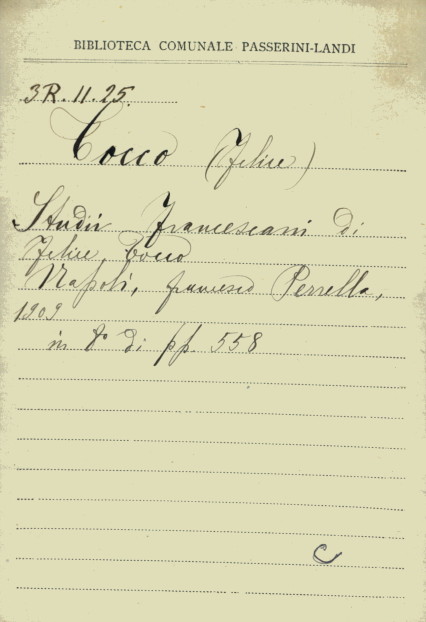 BIBLIOTECA COMUNALE PASSERINI-LANDI
3R.11.25.
Tocco (Felice)
Studii Francescani di
Felice Tocco
Napoli, Francesco Perrella,
1909
in 8° di pp. 558
C